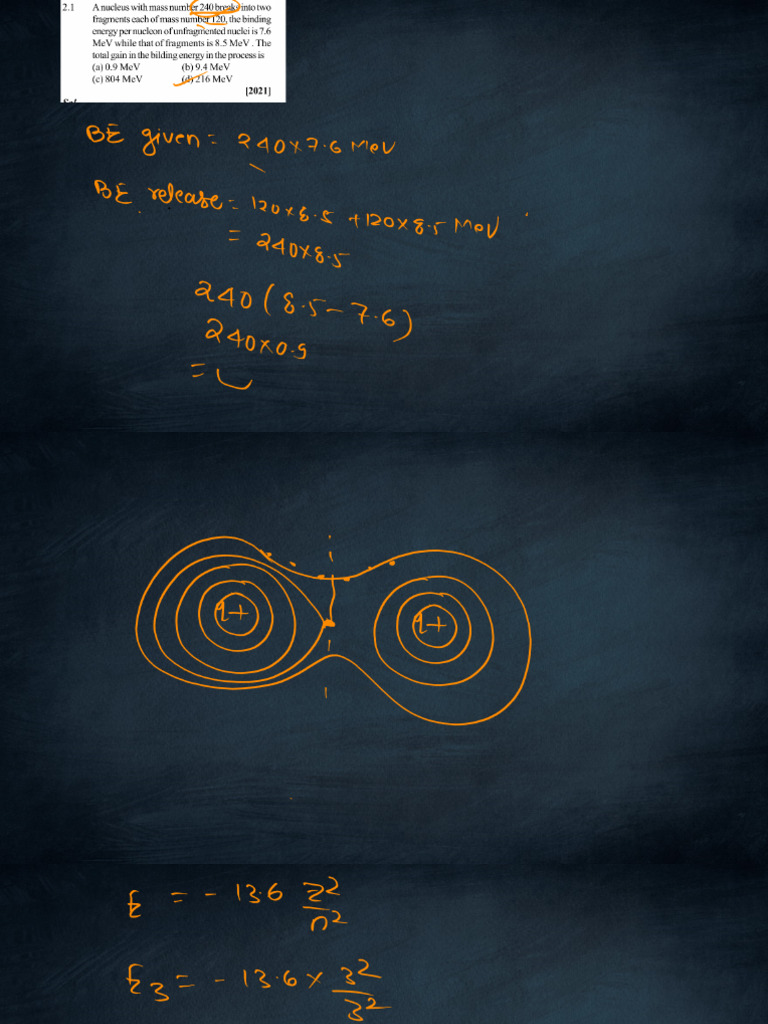 2.1 A nucleus with mass number 240 breaks into two
fragments each of mass number 120, the binding
energy per nucleon of unfragmented nuclei is 7.6
MeV while that of fragments is 8.5 MeV . The
total gain in the bilding energy in the process is
(a) 0.9 MeV (b) 9.4 MeV
(c) 804 MeV (d) 216 MeV
[2021]
BE given = 240×7.6 MeV
BE release = 120×8.5 +120×8.5 MeV
= 240×8.5
240(8.5-7.6)
240×0.9
=
q+ q+
E = -13.6 Z²/n²
E3 = -13.6 × 3²/3²